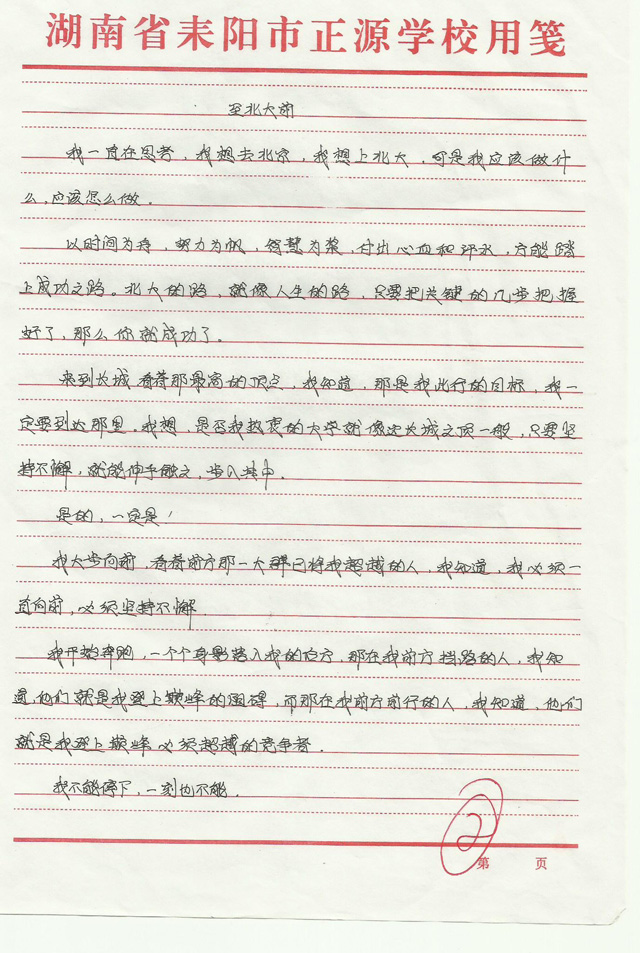 湖南省耒阳市正源学校用笺
至北大前
我一直在思考，我想去北京，我想上北大，可是我应该做什
么，应该怎么做。
以时间为舟，努力为帆，智慧为桨，付出心血和汗水，方能踏
上成功之路。北大的路，就像人生的路，只要把关键的几步把握
好了，那么你就成功了。
来到长城看着那最高的顶点，我知道，那是我此行的目标，我一
定要到达那里。我想，是否我热爱的大学就像这长城之顶一般，只要坚
持不懈，就能伸手触之，步入其中。
是的，一定是！
我大步向前，看着前方那一大群已将我超越的人，我知道，我必须一
直向前，必须坚持不懈。
我开始奔跑，一个个身影落入我的后方，那在我前方挡路的人，我知
道，他们就是我登上巅峰的阻碍，而那在我前方前行的人，我知道，他们
就是我登上巅峰必须超越的竞争者。
我不能停下，一刻也不能。
2
第 页